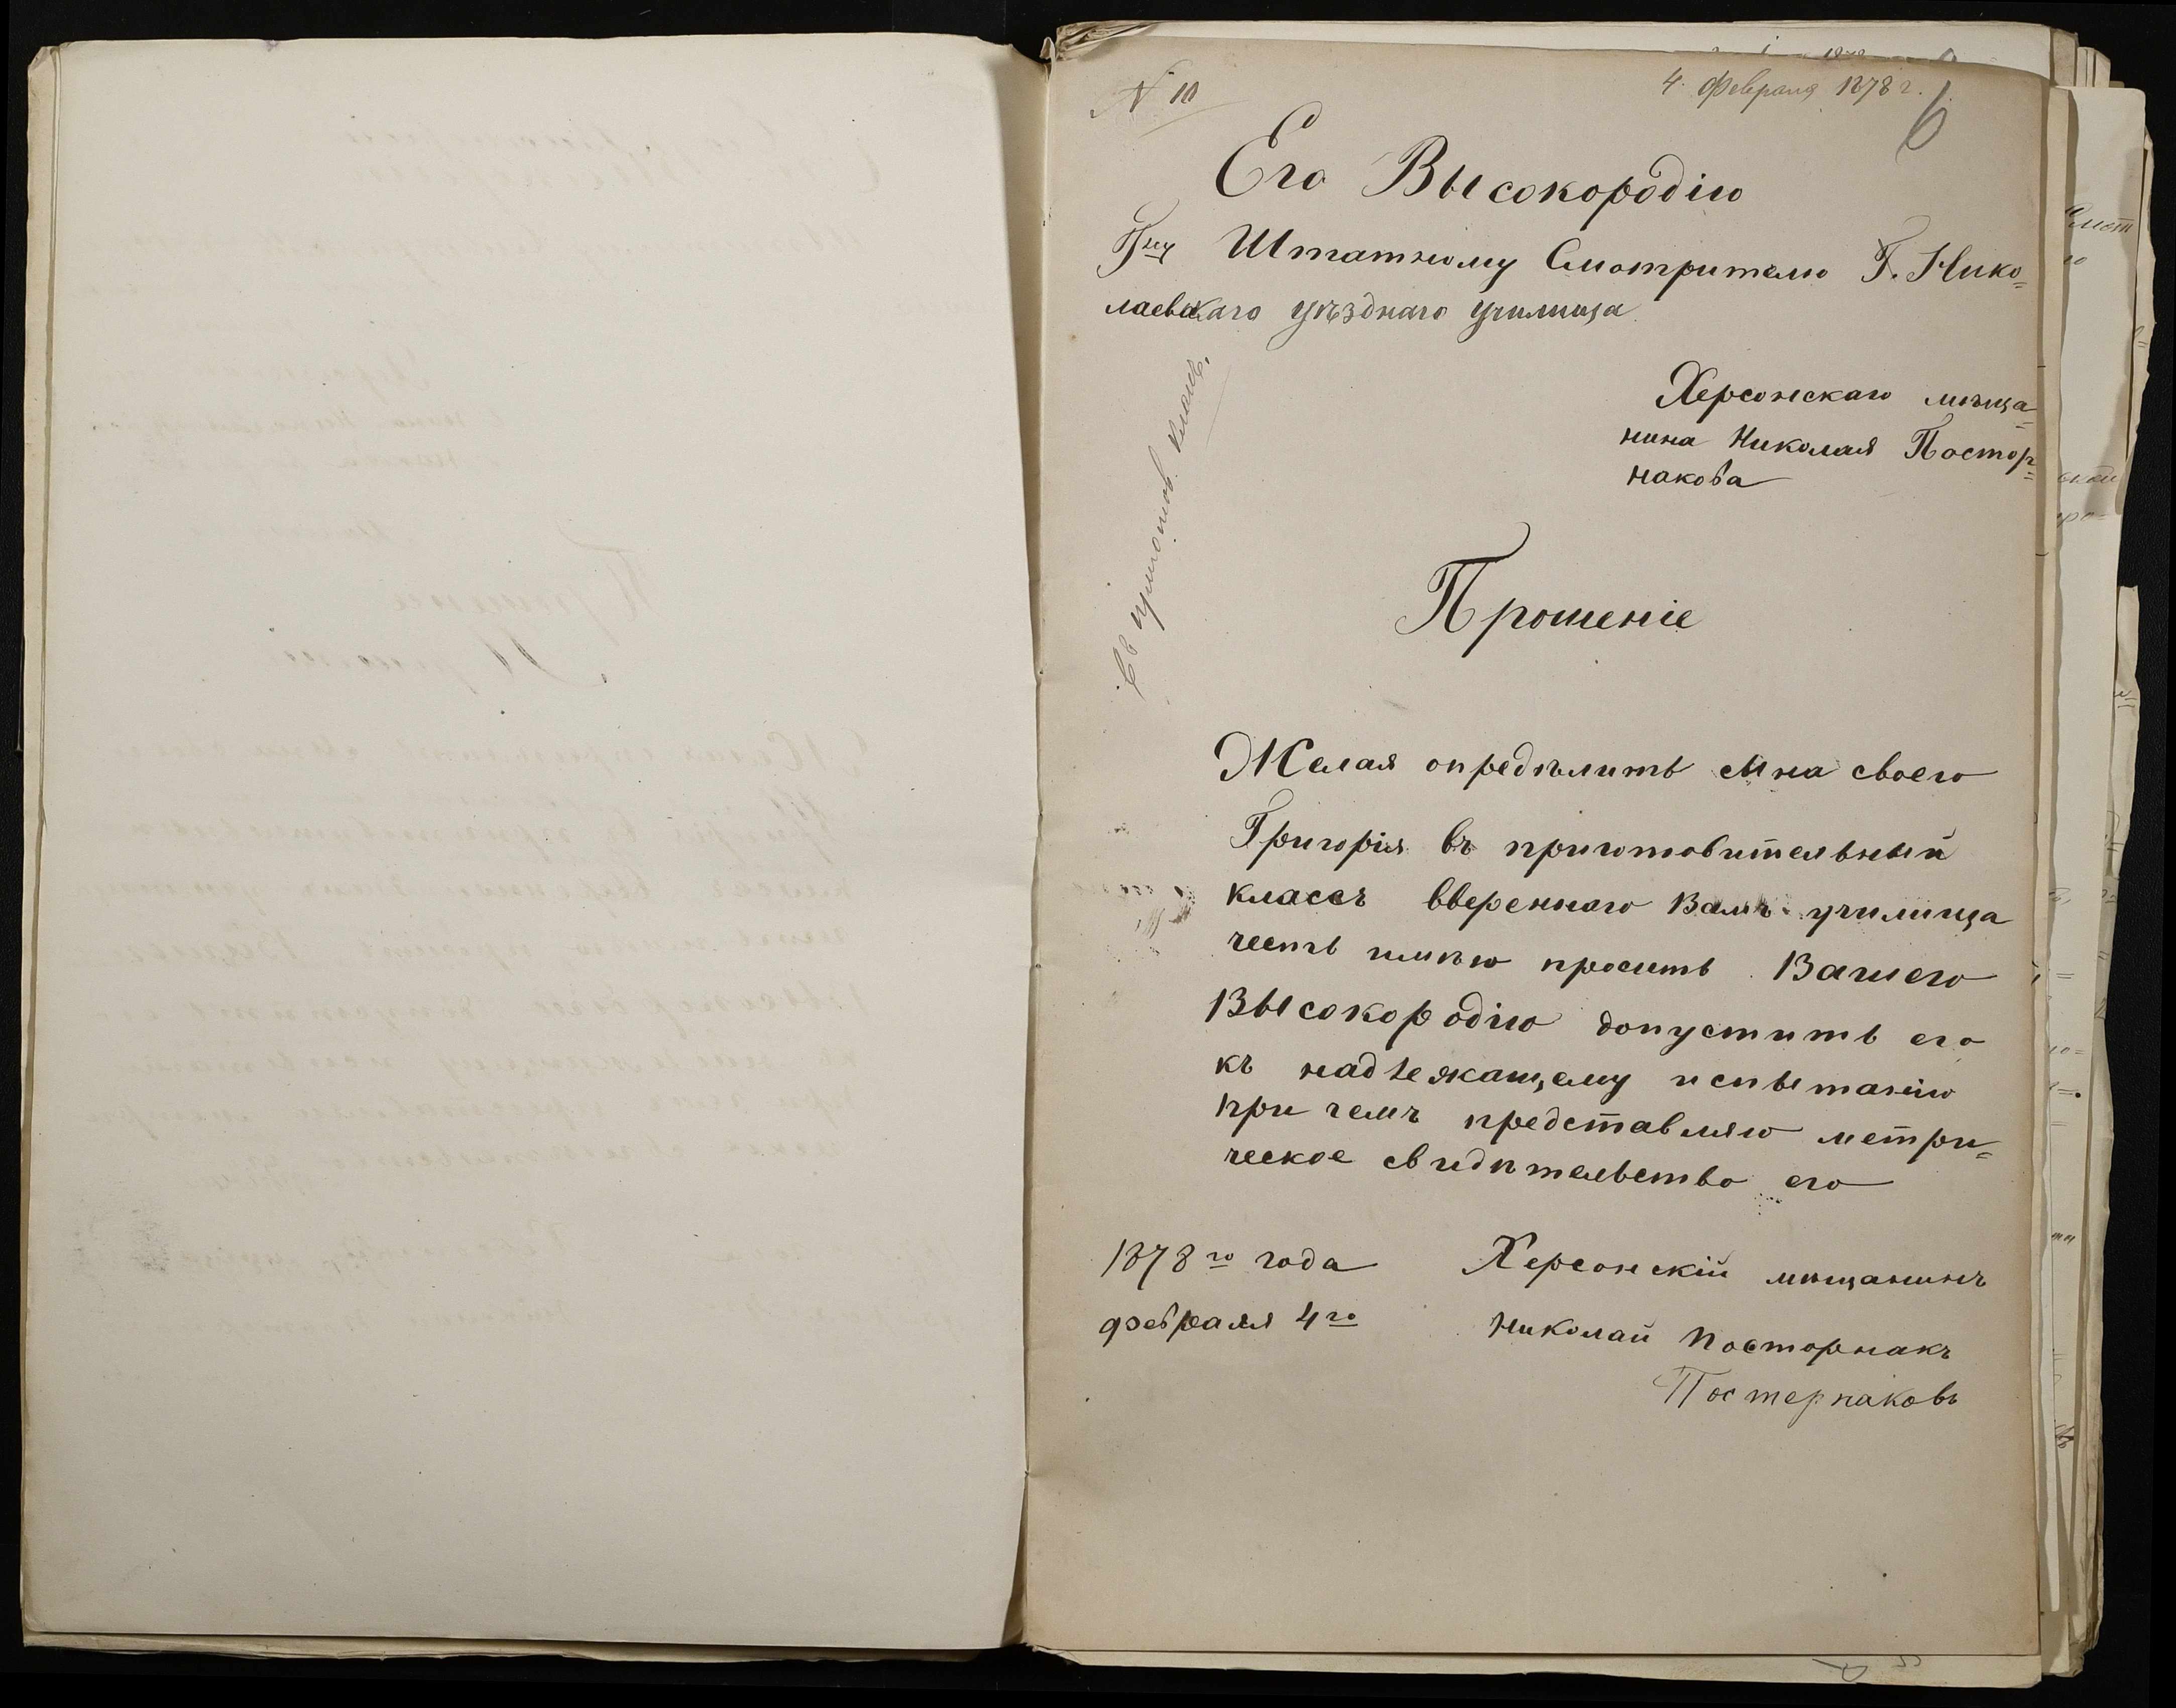 N 10
4. Февраля 1878 г.
6
Его Высокородію
Гну Штатному Смотрителю Г. Нико=
лаевскаго уѣзднаго училища
Херсонскаго мѣща=
нина Николая Постор=
накова
Въ приготов. классъ.
Прошеніе
Желая опредѣлить сына своего
Григорія въ приготовительный
классъ ввереннаго Вамъ училища
честь имѣю просить Вашего
Высокородію допустить его
къ надлежащему испытанію
при чемъ представляю метри=
ческое свидѣтельство его
1878го года Херсонскій мѣщанинъ
февраля 4го Николай Посторнакъ
Постернаковъ